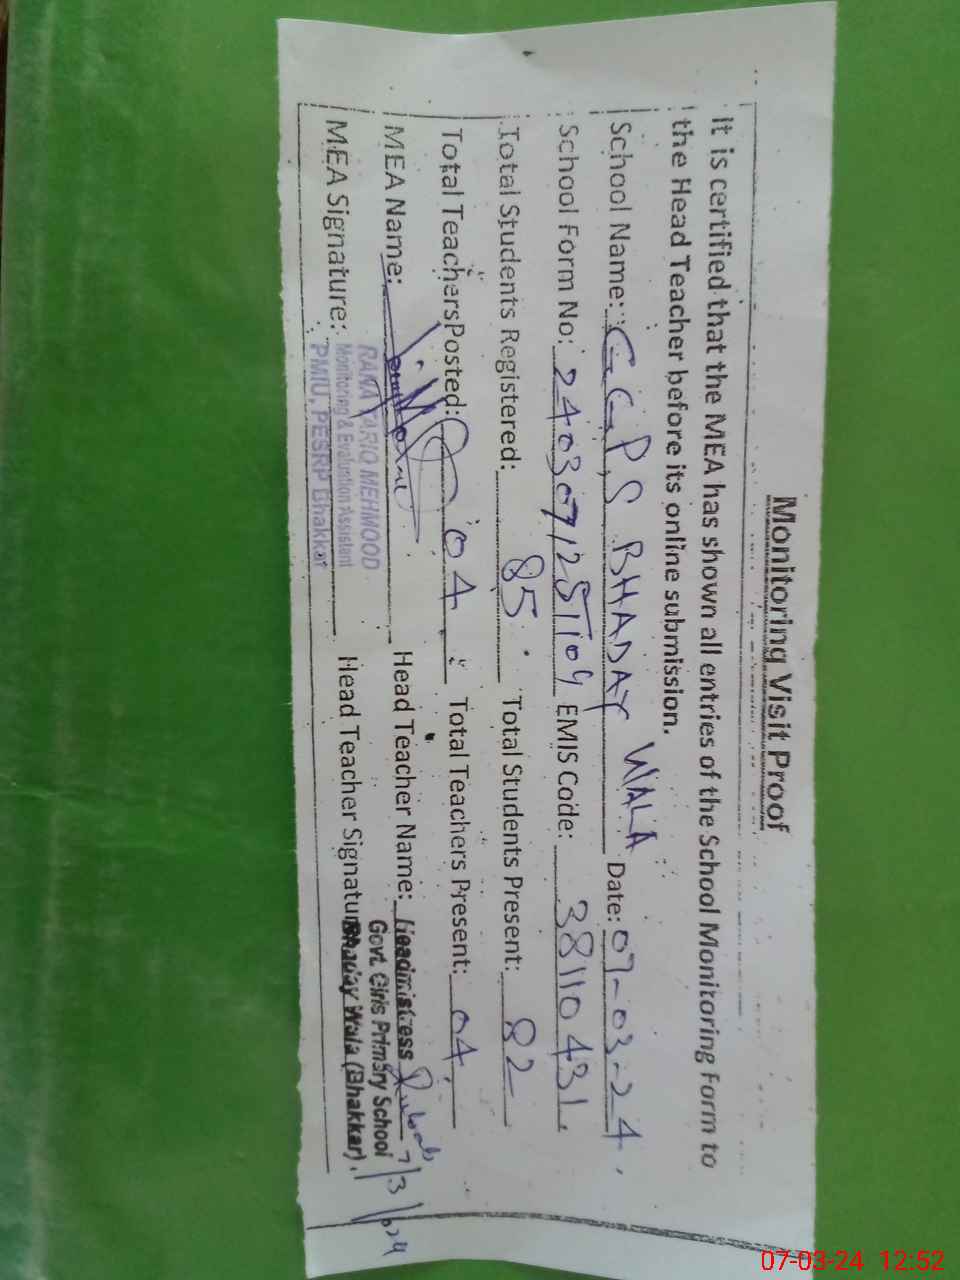 Monitoring Visit Proof
It is certified that the MEA has shown all entries of the School Monitoring Form to
the Head Teacher before its online submission.
School Name: G.G.P.S BHADAY WALA Date: 07-03-24.
School Form No: EMIS Code: 38110431.
Total Students Registered: 85. Total Students Present: 82
Total Teachers Posted: 04 Total Teachers Present: 04.
MEA Name: Head Teacher Name: Headmistress
RANA TARIQ MEHMOOD Govt. Girls Primary School
MEA Signature: Monitoring & Evaluation Assistant Head Teacher Signature: Bhaday Wala (Bhakkar) 7/3/2024
PMIU, PESRP Bhakkar
07-03-24 12:52